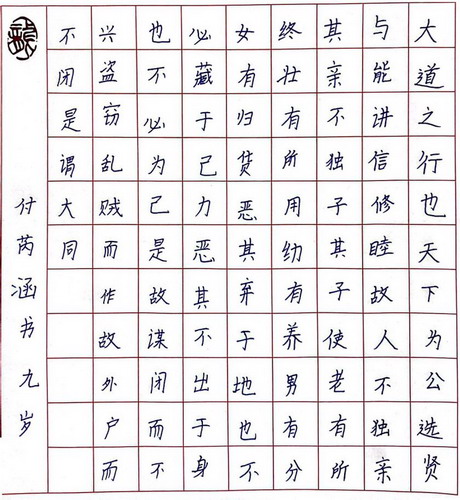 大道之行也天下为公选贤
与能讲信修睦故人不独亲
其亲不独子其子使老有所
终壮有所用幼有养男有分
女有归货恶其弃于地也不
必藏于己力恶其不出于身
也不必为己是故谋闭而不
兴盗窃乱贼而作故外户而
不闭是谓大同
付芮涵书九岁